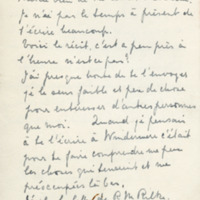 Je n'ai pas le temps à présent de
t'écrire beaucoup.
Voici le récit, c'est à peu près à
l'heure n'est ce pas?
J'ai presque honte de te l'envoyer
je le sens faible et peu de chose
pour intéresser d'autres personnes
que moi. Quand je pensais
à te l'écrire à Windermere c'était
pour te faire comprendre un peu
les choses qui tiennent et me
préoccupent là bas.